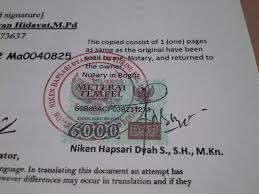 d signature]
van Hidayat, M.Pd
73637
The copied consist of 1 (one) pages
as same as the original have been
Notary, and returned to
the owner
Notary in Bogor
2 Ma0040825
NIKEN HAPSARI DYAH
METERAI
TEMPEL
ENAM RIBU RUPIAH
6000
DJP
Niken Hapsari Dyah S., S.H., M.Kn.
of
anguage. In translating this document an attempt has
owever differences may occur in translation and if they